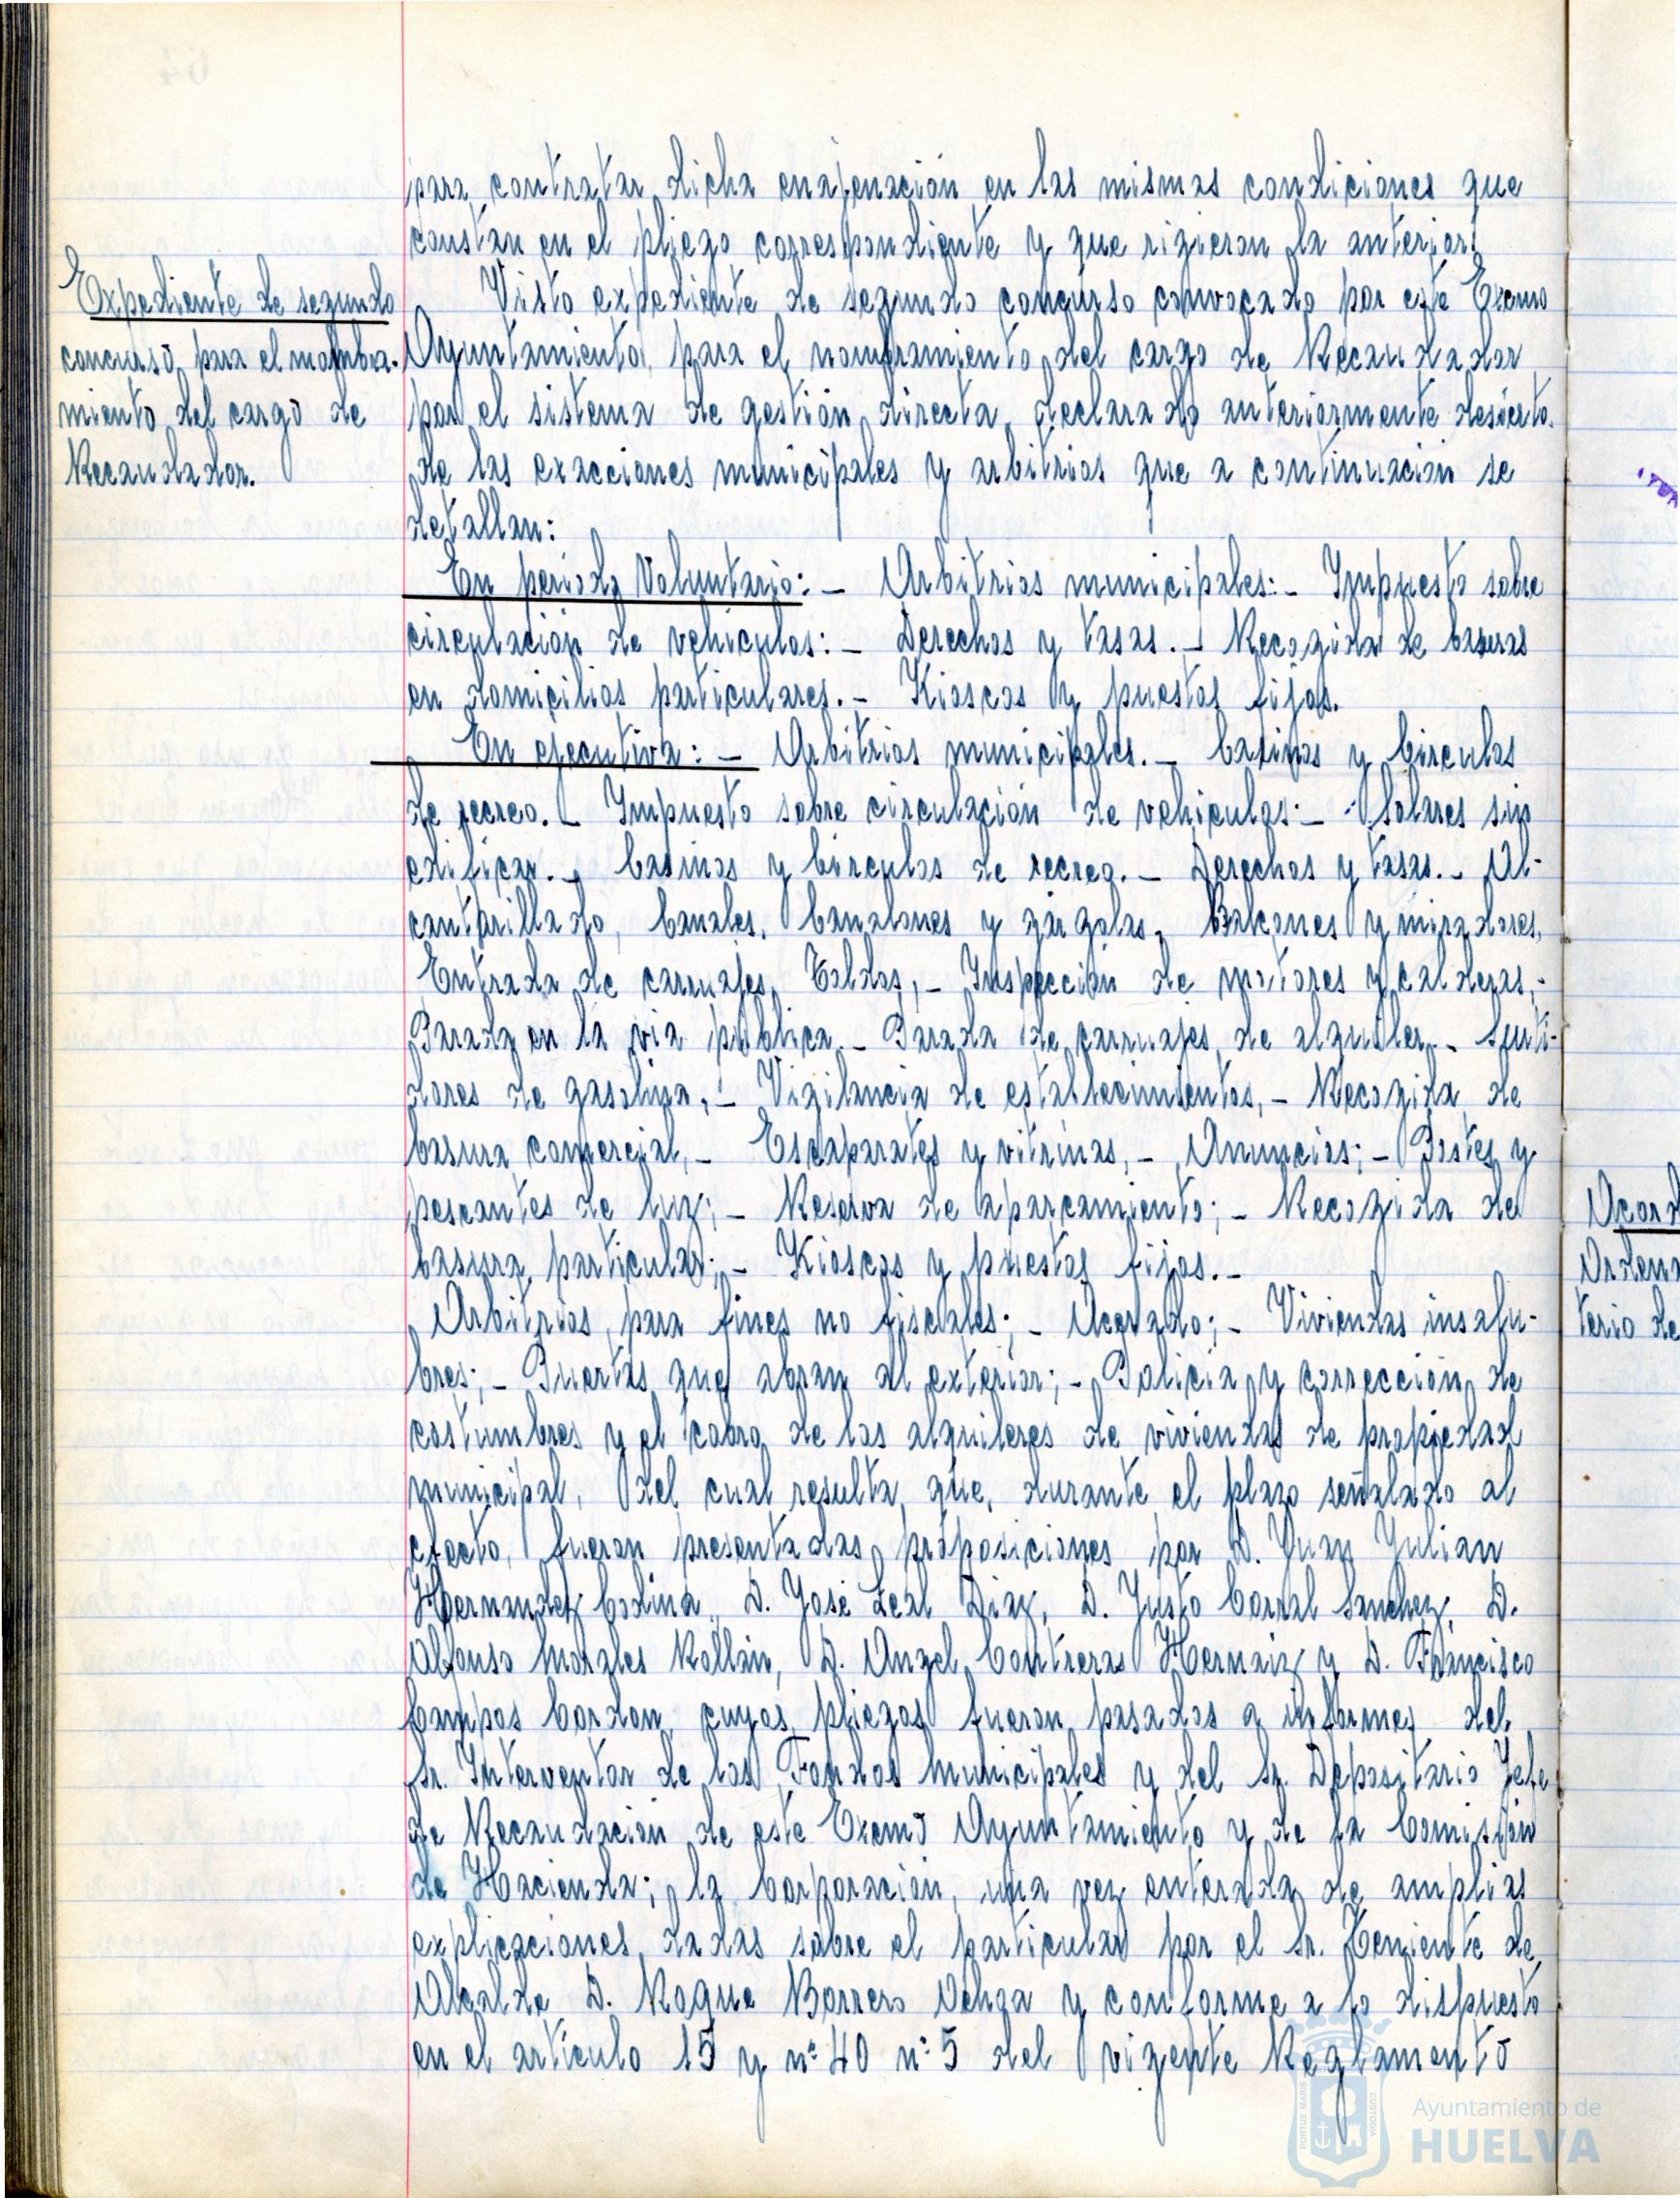 para contratar dicha enajenación en las mismas condiciones que
constan en el pliego correspondiente y que rigieron la anterior.
Expediente de segundo
concurso para el nombra-
miento del cargo de
Recaudador.
Visto expediente de segundo concurso convocado por este Excmo
Ayuntamiento, para el nombramiento del cargo de Recaudador
por el sistema de gestión directa, declarado anteriormente desierto.
de las exacciones municipales y arbitrios que a continuación se
detallan:
En periodo Voluntario: — Arbitrios municipales:- Impuesto sobre
circulación de vehiculos: — Derechos y tasas. — Recogida de basuras
en domicilios particulares. — Kioscos y puestos fijos.
En ejecutiva: — Arbitrios municipales. — Casinos y Circulos
de recreo. — Impuesto sobre circulación de vehiculos:— Solares sin
edificar. — Casinos y Circulos de recreo. — Derechos y tasas. - Al-
cantarillado, Canales, Canalones y gárgolas, Balcones y miradores,
Entrada de carruajes, Toldos, — Inspección de motores y calderas, -
Parada en la via pública — Parada de carruajes de alquiler. - Surti-
dores de gasolina, — Vigilancia de establecimientos, — Recogida de
basura comercial, — Escaparates y vitrinas, — Anuncios; — Postes y
pescantes de luz; — Reserva de aparcamiento; — Recogida de
basura particular; — Kioscos y puestos fijos. —
Arbitrios para fines no fiscales; — Acerado; — Viviendas insalu-
bres; — Puertas que abran al exterior; — Policia y corrección de
costumbres y el cobro de los alquileres de viviendas de propiedad
municipal, del cual resulta, que, durante el plazo señalado al
efecto, fueron presentadas proposiciones por D. Juan Julian
Hernandez Codina, D. José Leal Diaz, D. Justo Corral Sanchez, D.
Alfonso Morales Rollán, D. Angel Contreras Hernaiz y D. Francisco
Campos Cordon, cuyos pliegos fueron pasados a informes del
Sr. Interventor de los Fondos Municipales y del Sr. Depositario Jefe
de Recaudación de este Excmo Ayuntamiento y de la Comisión
de Hacienda; la Corporación, una vez enterada de amplias
explicaciones dadas sobre el particular por el Sr. Teniente de
Alcalde D. Roque Barrero Ochoa y conforme a lo dispuesto
en el artículo 15 y nº 40 nº 5 del vigente Reglamento
Acord
Ordena
terio de
PORTUS MARIS CUSTODIA
Ayuntamiento de
HUELVA